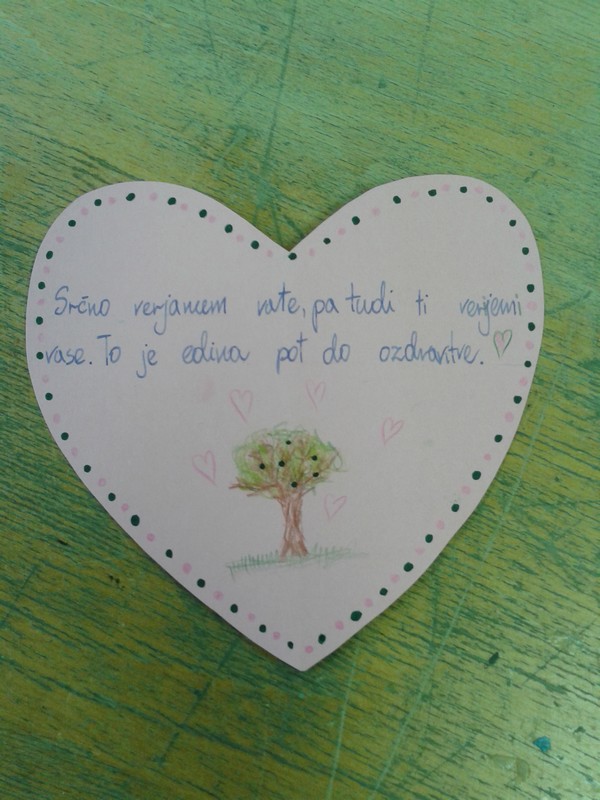 Srčno verjamem vate, pa tudi ti verjemi
vase. To je edina pot do ozdravitve.